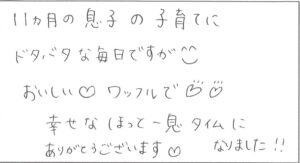 11ヵ月の息子の子育てに
ドタバタな毎日ですが
おいしい♡ワッフルで
幸せなほって一息タイムに
なりました!!
ありがとうございます♡